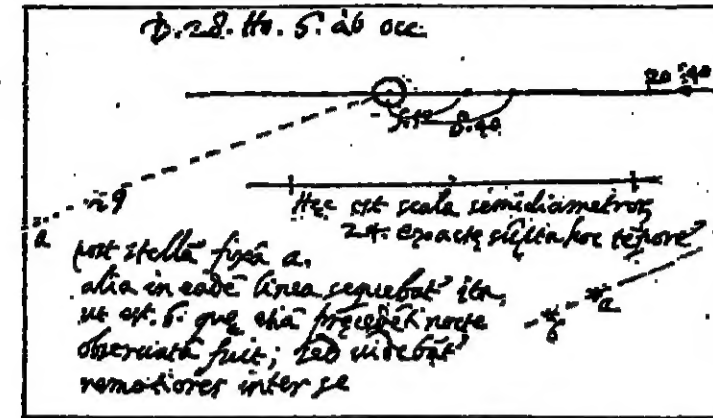 D. 28. Ho. 6. ab occ
20 : 40
8.40
29
a
Hęc est scala semidiametror
24. exactę sūpta hoc tēpore
post stellā fixā a.
alia in eadē linea sequebat' ita,
ut est .b. que etiā precedēti nocte
observata fuit; sed videbāt'
remotiores inter se
b a